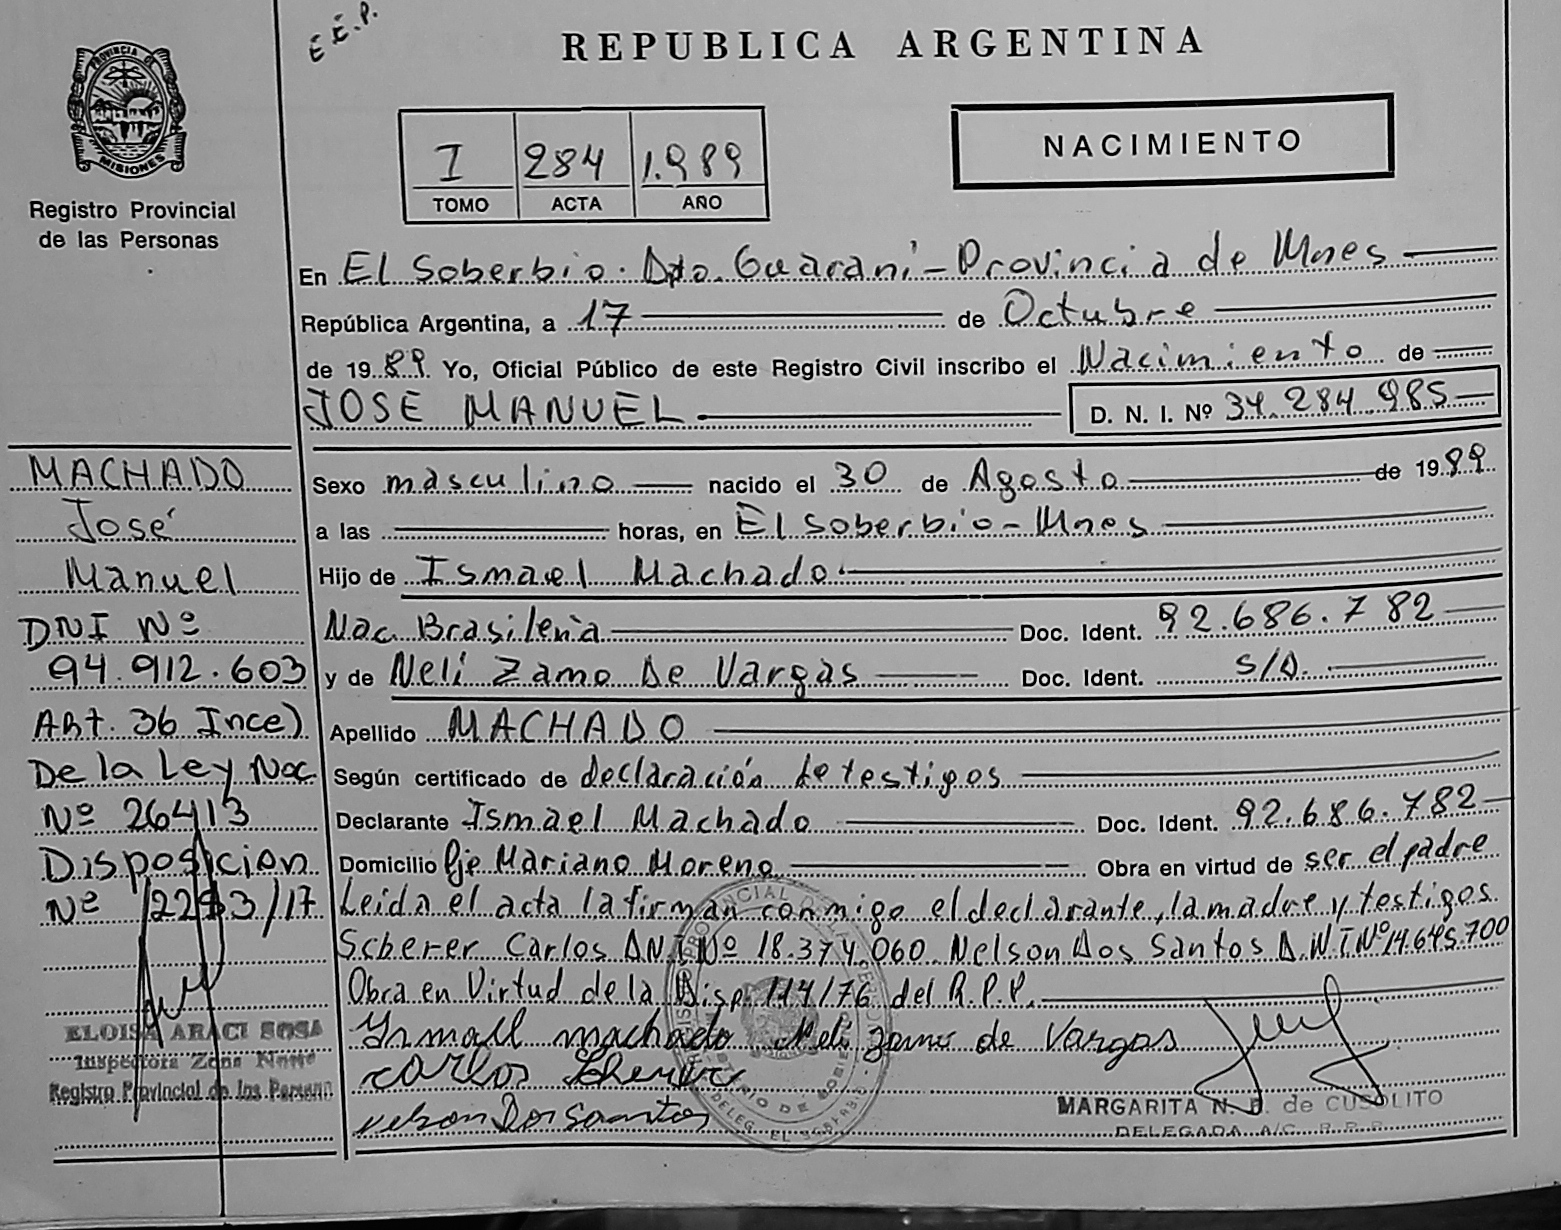 É.É.P.
REPUBLICA ARGENTINA
PROVINCIA DE MISIONES
Registro Provincial
de las Personas
I 284 1.989
TOMO ACTA AÑO
NACIMIENTO
En El Soberbio. Dpto. Guaraní - Provincia de Mnes
República Argentina, a 17 de Octubre
de 1989. Yo, Oficial Público de este Registro Civil inscribo el Nacimiento de
JOSE MANUEL D. N. I. Nº 34.284.985
Sexo masculino nacido el 30 de Agosto de 1989
a las horas, en El Soberbio - Mnes
Hijo de Ismael Machado
Nac. Brasileña Doc. Ident. 92.686.782
y de Neli Zamo De Vargas Doc. Ident. S/D.
Apellido MACHADO
Según certificado de declaración de testigos
Declarante Ismael Machado Doc. Ident. 92.686.782
Domicilio Pje Mariano Moreno Obra en virtud de ser el padre
Leida el acta la firman conmigo el declarante, la madre y testigos.
Scherer Carlos DNI Nº 18.374.060 Nelson Dos Santos D.N.I Nº 14.645.700
Obra en Virtud de la Disp. 114/76 del R.P.P.
Ismall machado Neli zamo de Vargas
Carlos Scherer
Nelson Dos Santos
MARGARITA N. B. de CUSOLITO
DELEGADA A/C R.P.P.
MACHADO
José
Manuel
DNI Nº
94.912.603
Art. 36 Ince)
De la Ley Nac
Nº 26413
Disposicion
Nº 2293/17
ELOISA ARACI SOSA
Inspectora Zona Norte
Registro Provincial de las Personas